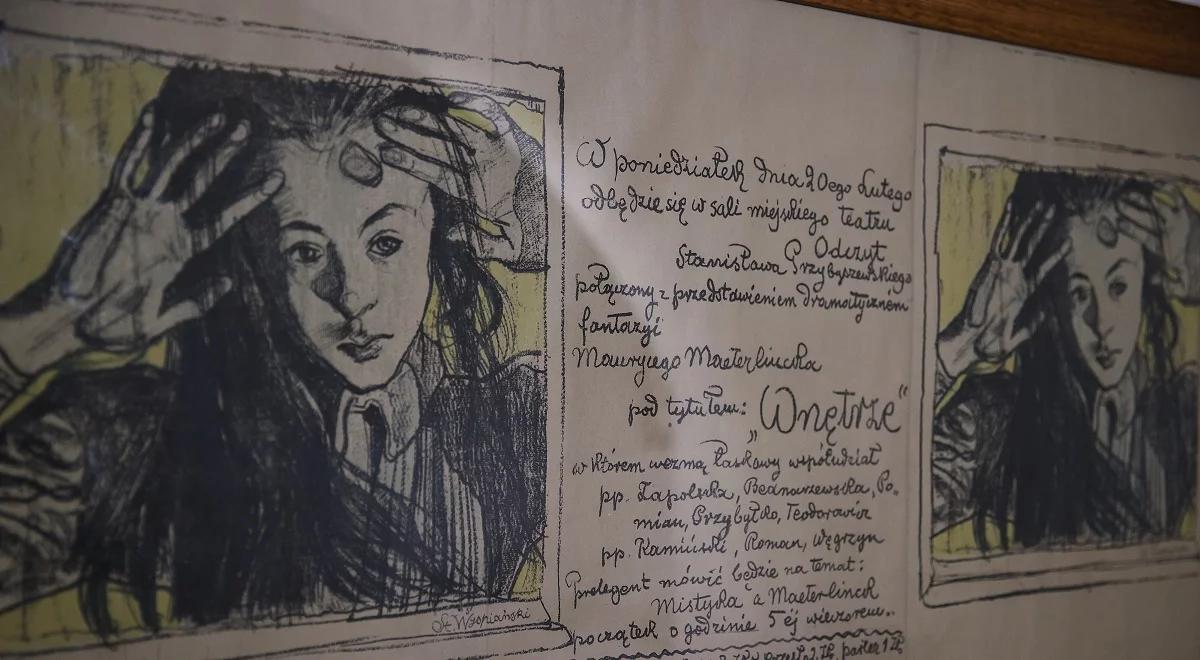 W poniedziałek dnia 20ego Lutego
odbędzie się w sali miejskiego teatru
Odczyt
Stanisława Przybyszewskiego
połączony z przedstawieniem dramatycznem
fantazyi
Maurycego Maeterlincka
pod tytułem: „Wnętrze“
w którem wezmą łaskawy współudział
pp. Zapolska, Bednarzewska, Po-
mian, Przybyłko, Teodorowicz
pp. Kamiński, Roman, Węgrzyn
Prelegent mówić będzie na temat:
Mistyka a Maeterlinck
początek o godzinie 5ej wieczorem..
parter 1 Zł
St. Wyspiański